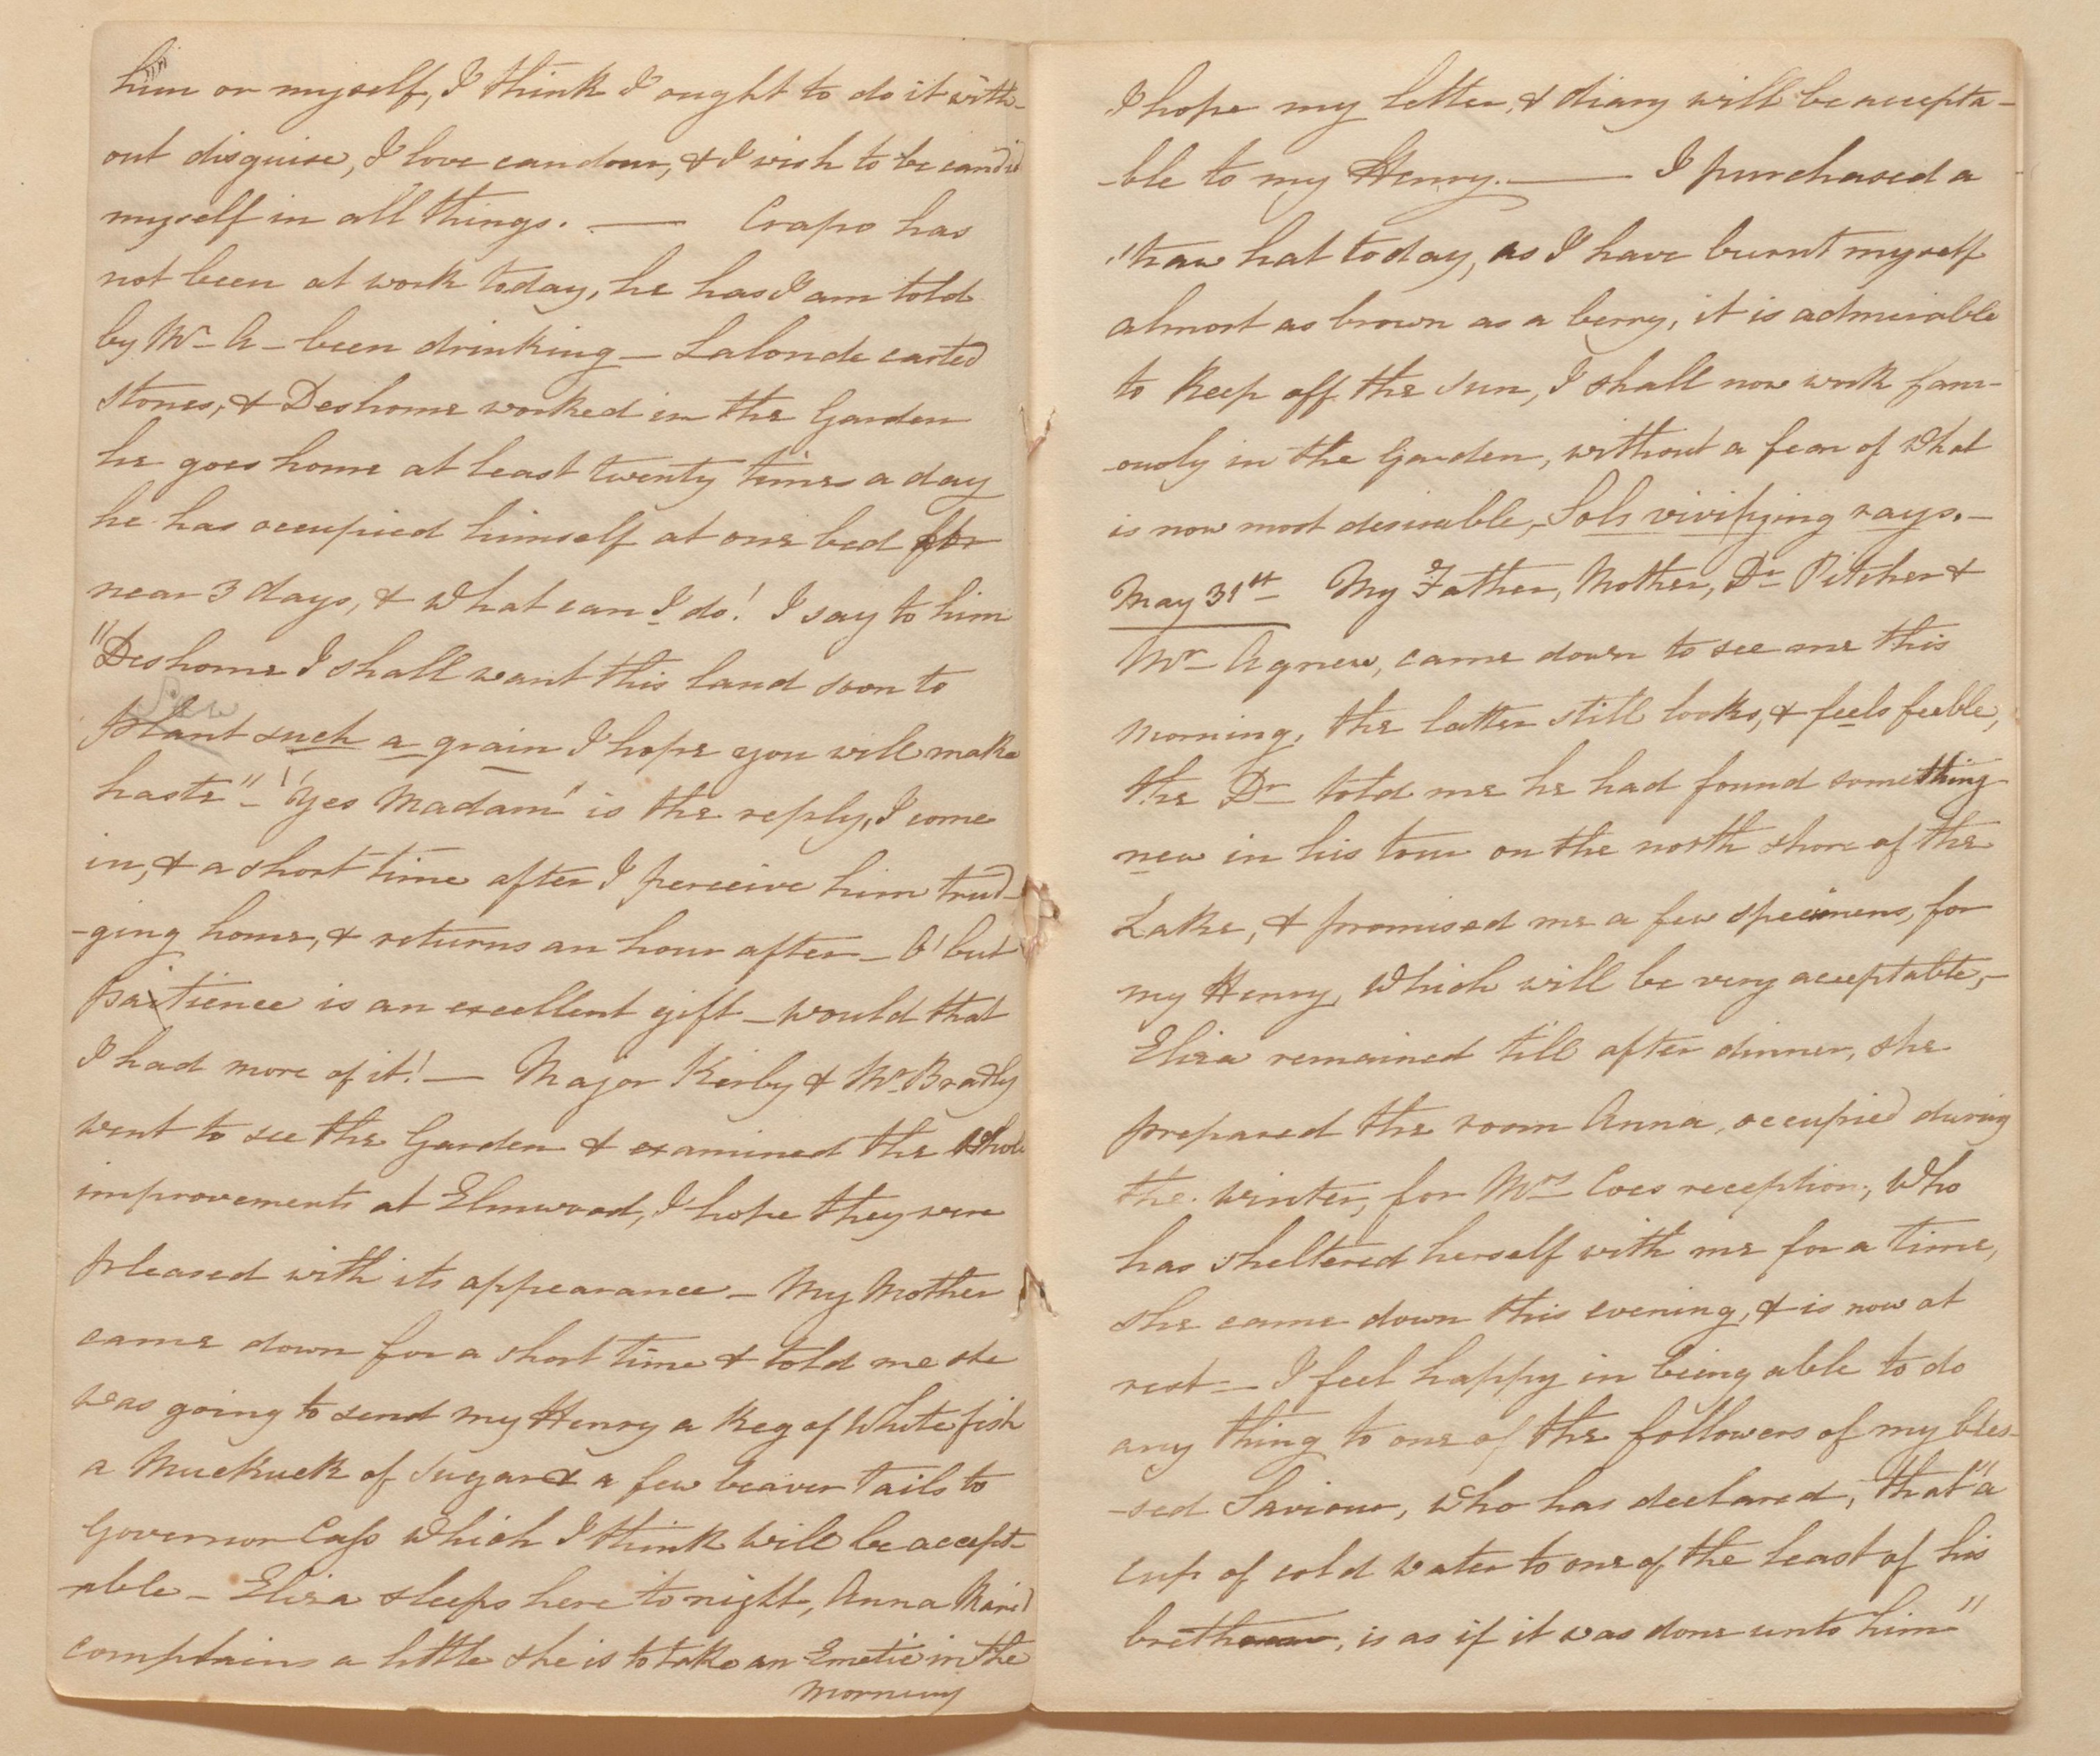 him or myself, I think I ought to do it with-
out disguise, I love candour, & I wish to be candid
myself in all things. — Crapo has
not been at work today, he has I am told
by Mr A – been drinking – Lalonde carted
stones, & Deshome worked in the Garden
he goes home at least twenty times a day
he has occupied himself at one bed for
near 3 days, & what can I do! I say to him
"Deshome I shall want this land soon to
sow
plant such a grain I hope you will make
haste" – "Yes Madam" is the reply, I come
in, & a short time after I perceive him trud-
-ging home, & returns an hour after – O! but
paitience is an excellent gift – would that
I had more of it! — Major Kirby & Mr Bradly
went to see the Garden & examined the whole
improvements at Elmwood, I hope they were
pleased with its appearance – My Mother
came down for a short time & told me she
was going to send my Henry a keg of White fish
a Muckuck of sugar & a few beaver tails to
Governor Cass which I think will be accept-
-able – Eliza sleeps here to night, Anna Maria
complains a little she is to take an Emetic in the
morning
I hope my letter, & diary will be accepta-
-ble to my Henry. — I purchased a
straw hat today, as I have burnt myself
almost as brown as a berry, it is admirable
to keep off the sun, I shall now work fam-
-ously in the Garden, without a fear of what
is now most desirable, Sols vivifying rays. –
May 31st My Father, Mother, Dr Pitcher &
Mr Agnew, came down to see me this
morning, the latter still looks, & feels feeble,
the Dr told me he had found something
new in his tour on the north shore of the
Lake, & promised me a few specimens, for
my Henry, which will be very acceptable, –
Eliza remained till after dinner, she
prepared the room Anna, occupied during
the winter, for Mrs Coes reception, who
has sheltered herself with me for a time,
she came down this evening, & is now at
rest – I feel happy in being able to do
any thing to one of the followers of my bles-
-sed Saviour, who has declared, that "a
cup of cold water to one of the least of his
brethren, is as if it was done unto him"